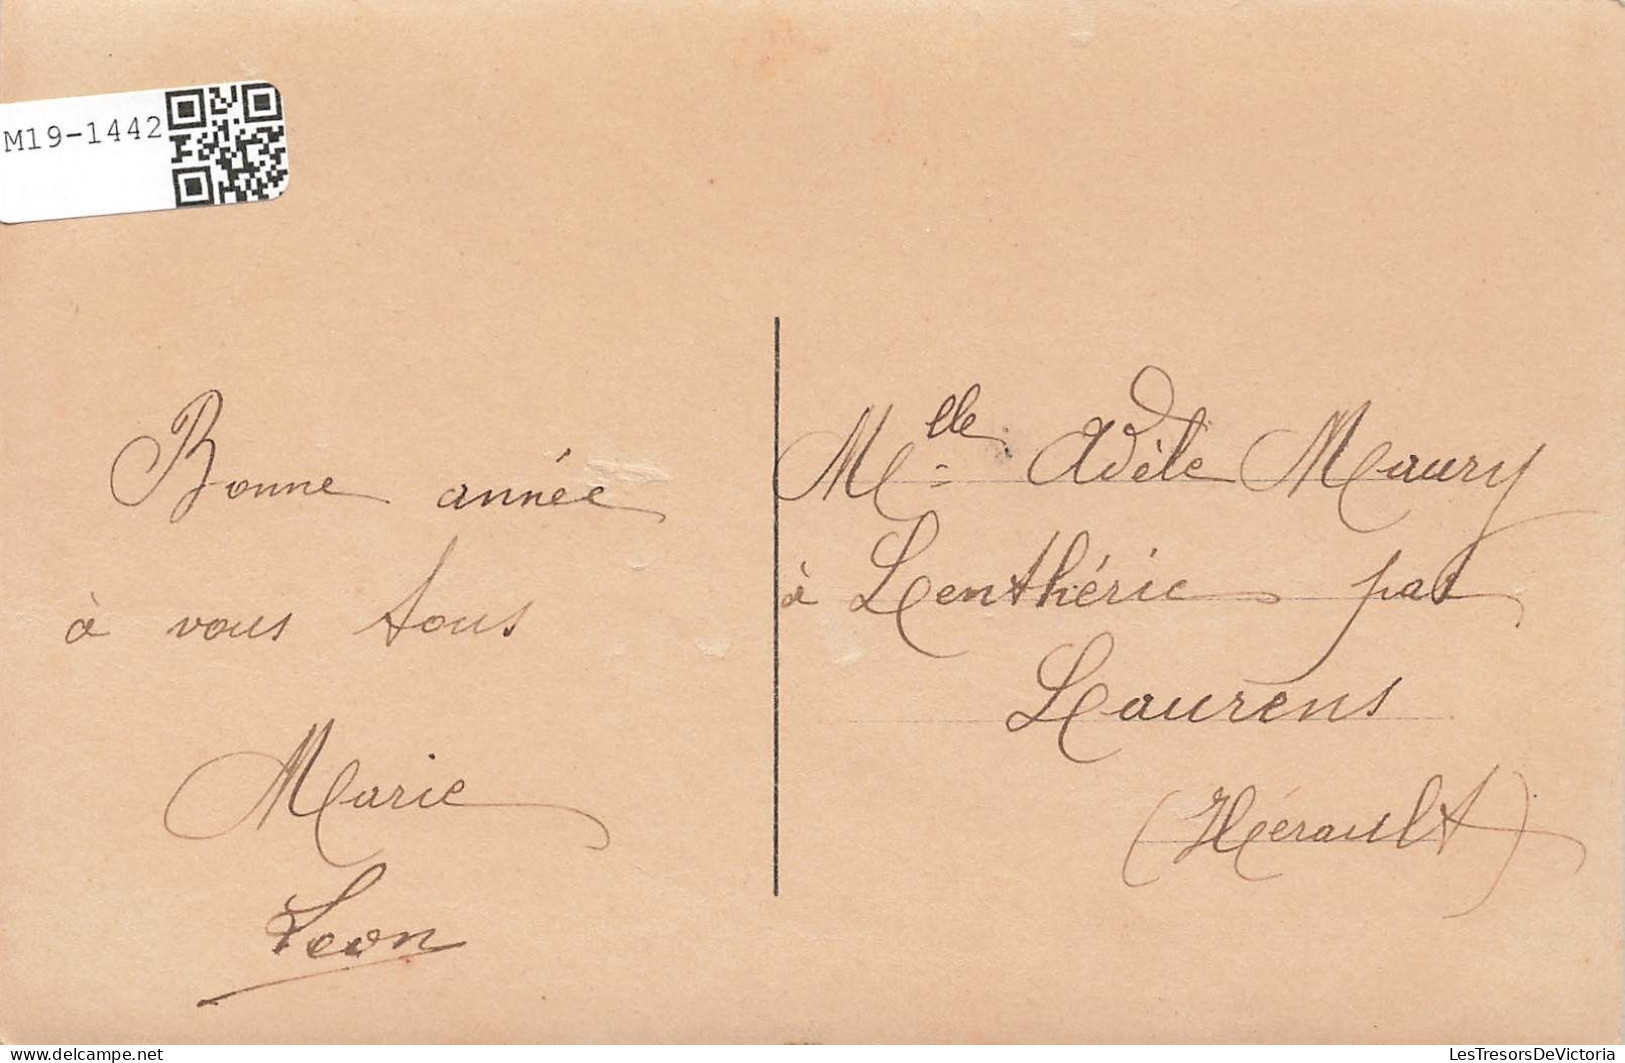 M19-1442
Bonne année
à vous tous
Marie
Leon
Mlle Adèle Maury
à Lenthéric par
Laurens
(Hérault)
delcampe.net
LesTresorsDeVictoria